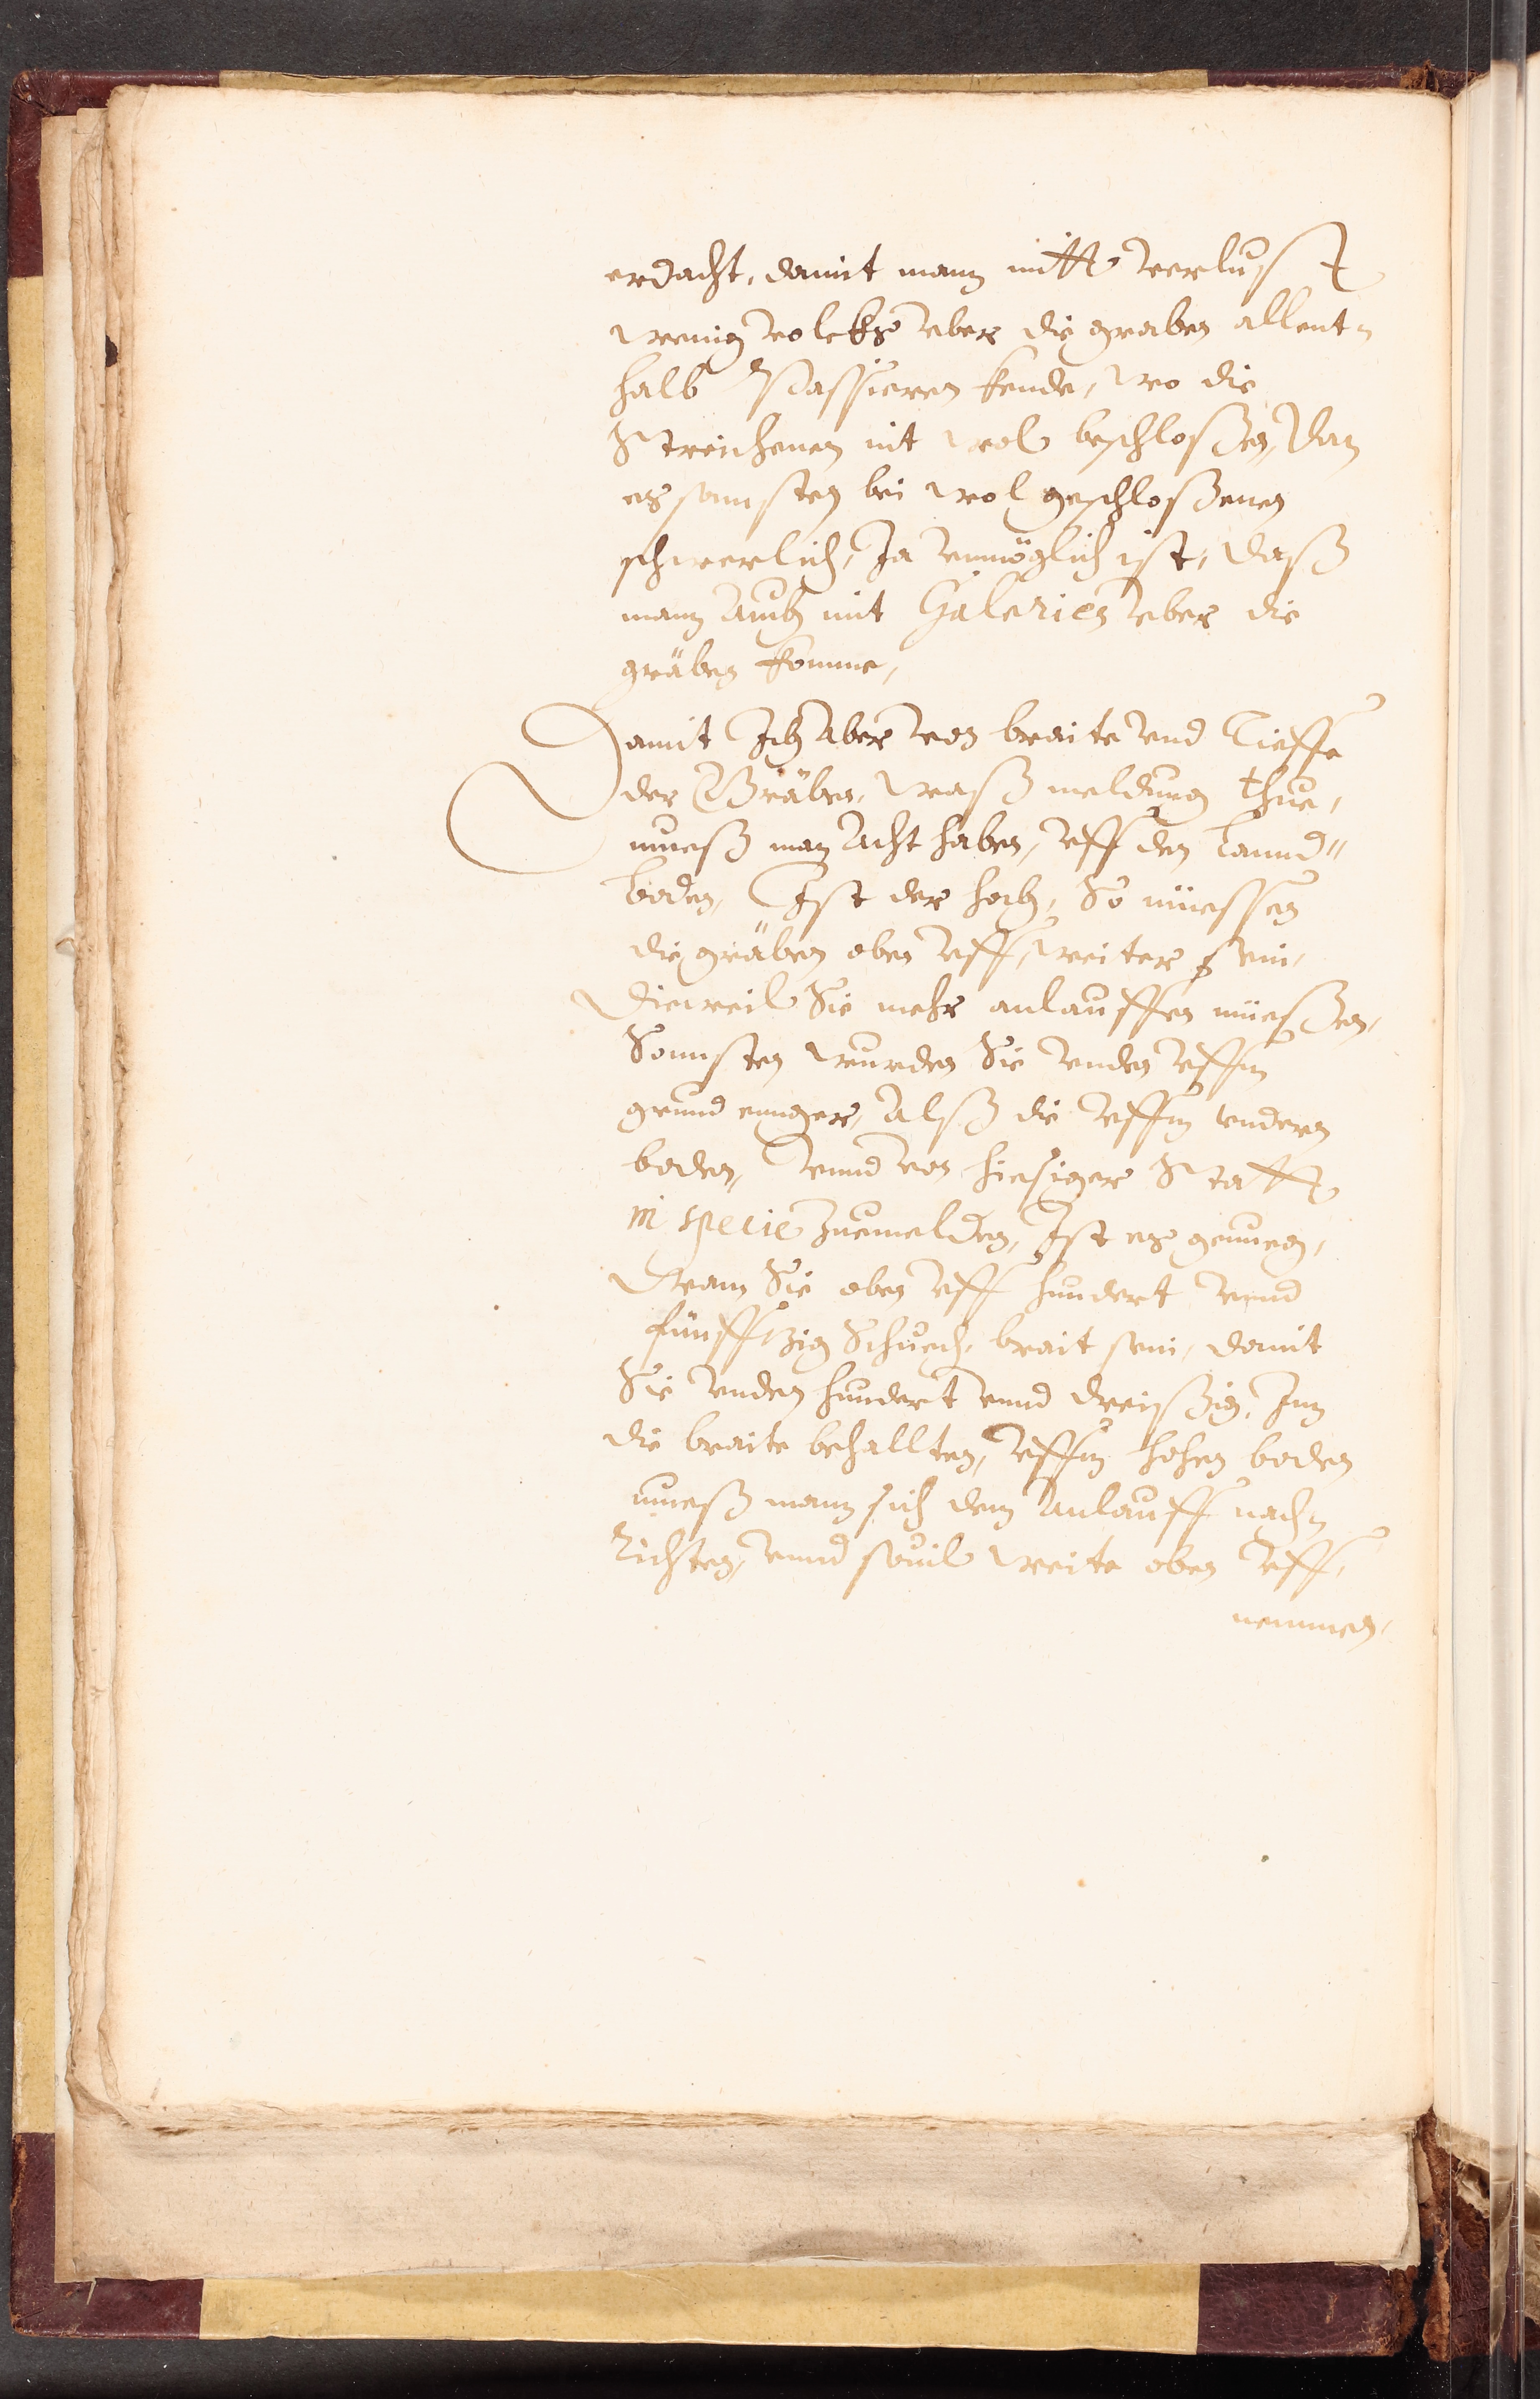 erdacht, damit mann mitt verlust
wenig volckhs vber die graben allent-
halb Passieren kende, wo die
Streichenen nit wol beschloßen, Dan
es sonnsten bei wol geschloßenen
schwerlich, Ja vnmöglich ist, daß
mann Auch mit Galerien vber die
gräben komme,
Damit Ich Aber von braite vnd Tieffe
der Gräben, waß meldung thue,
mueß man Acht haben, vff den Lannd"
boden, Ist der hoch, So müessen
die gräben oben vff, weiter sein,
Dieweil Sie mehr anlauffen müeßen,
Sonnsten wurden Sie vnden vffm
grund ennger, Alß die vffm vndern
boden, vnnd von hiesiger Statt
in specie zuemelden, Ist es genueg,
Wann Sie oben vff hundert vnnd
fünfftzig Schuech, brait sein, damit
Sie vnden hundert vnnd dreißig, Inn
die braite behallten, vffm hohen boden
mueß mann sich dem Anlauff nach-
Richten, vnnd souil weite oben vff,
nemmen,